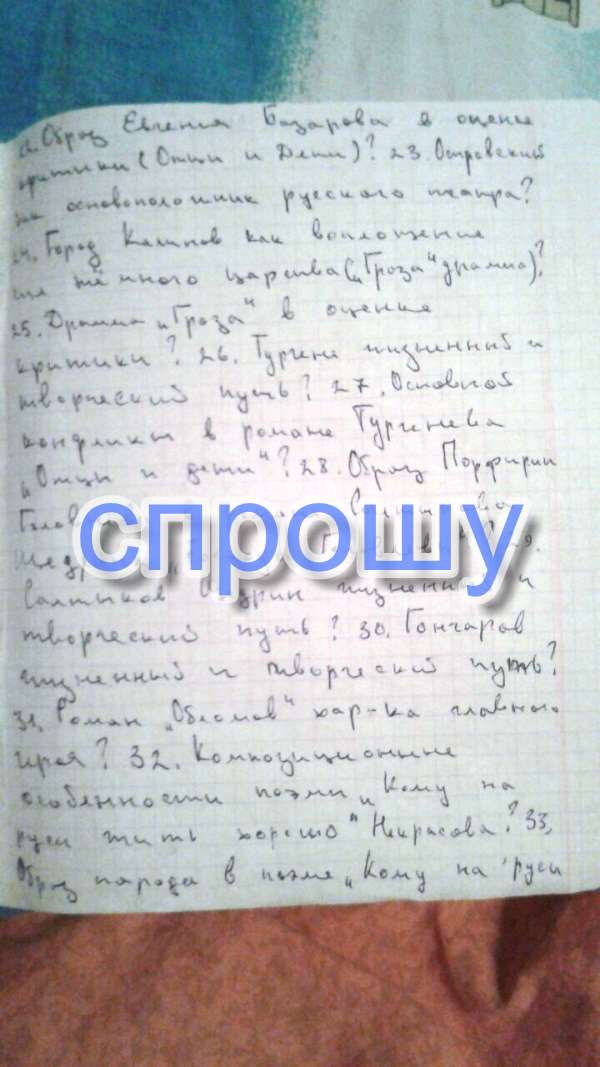 Образ Евгения Базарова в оценке
критики (Отцы и Дети)? 23. Островский
как основоположник русского театра?
24. Город Калинов как воплощение
тёмного царства („Гроза“ драмма)?
25. Драмма „Гроза“ в оценке
критики? 26. Тургене жизненный и
творческий путь? 27. Основной
конфликт в романе Тургенева
„Отцы и дети“? 28. Образ Порфирии
спрошу
Салтыков жизненный и
творческий путь? 30. Гончаров
жизненный и творческий путь?
31. Роман „Обломов“ хар-ка главного
героя? 32. Композиционные
особенности поэмы „Кому на
руси жить хорошо“ Некрасова? 33.
Образ народа в поэме „Кому на руси